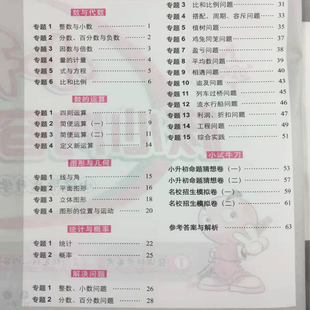 数与代数
专题1 整数与小数 1
专题2 分数、百分数与负数 2
专题3 因数与倍数 3
专题4 量的计量 4
专题5 式与方程 5
专题6 比和比例 6
数的运算
专题1 四则运算 7
专题2 简便运算(一) 9
专题3 简便运算(二) 11
专题4 定义新运算 14
图形与几何
专题1 线与角 15
专题2 平面图形 16
专题3 立体图形 18
专题4 图形的位置与运动 20
统计与概率
专题1 统计 22
专题2 概率 25
解决问题
专题1 整数、小数问题 26
专题2 分数、百分数问题 28
专题3 比和比例问题 31
专题4 搭配、周期、容斥问题 33
专题5 植树问题 34
专题6 鸡兔同笼问题 35
专题7 盈亏问题 37
专题8 平均数问题 38
专题9 相遇问题 39
专题10 追及问题 40
专题11 列车过桥问题 41
专题12 流水行船问题 43
专题13 利润、折扣问题 47
专题14 工程问题 49
专题15 综合实践 51
小试牛刀
小升初命题猜想卷(一) 53
小升初命题猜想卷(二) 57
名校招生模拟卷(一) 59
名校招生模拟卷(二) 61
参考答案与解析 63